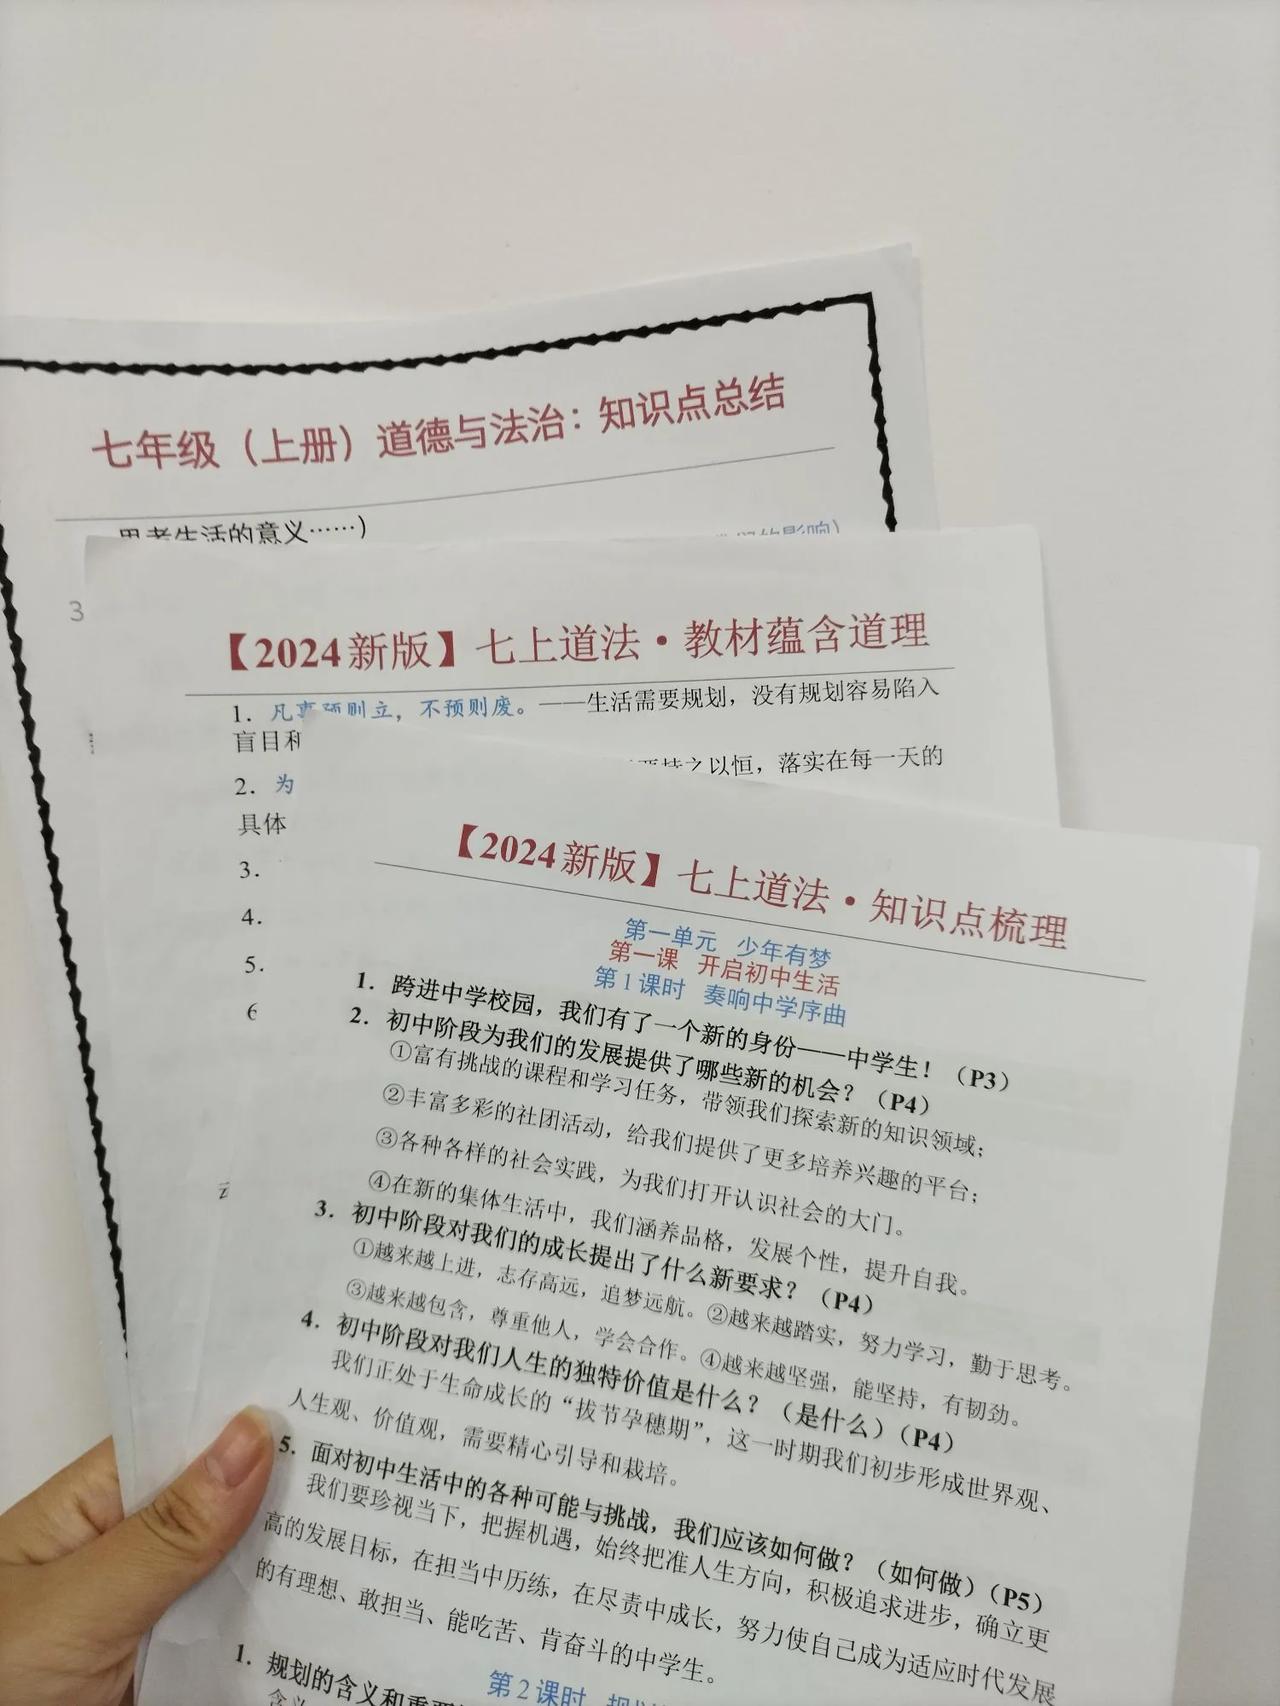 七年级（上册）道德与法治：知识点总结
思考生活的意义……）
们的影响）
3
【2024新版】七上道法·教材蕴含道理
1. 凡事预则立，不预则废。——生活需要规划，没有规划容易陷入
盲目和
持之以恒，落实在每一天的
2. 为
具体
3.
4.
5.
6
【2024新版】七上道法·知识点梳理
第一单元 少年有梦
第一课 开启初中生活
第1课时 奏响中学序曲
1. 跨进中学校园，我们有了一个新的身份——中学生！（P3）
2. 初中阶段为我们的发展提供了哪些新的机会？（P4）
①富有挑战的课程和学习任务，带领我们探索新的知识领域；
②丰富多彩的社团活动，给我们提供了更多培养兴趣的平台；
③各种各样的社会实践，为我们打开认识社会的大门。
④在新的集体生活中，我们涵养品格，发展个性，提升自我。
3. 初中阶段对我们的成长提出了什么新要求？（P4）
①越来越上进，志存高远，追梦远航。②越来越踏实，努力学习，勤于思考。
③越来越包含，尊重他人，学会合作。④越来越坚强，能坚持，有韧劲。
4. 初中阶段对我们人生的独特价值是什么？（是什么）（P4）
我们正处于生命成长的“拔节孕穗期”，这一时期我们初步形成世界观、
人生观、价值观，需要精心引导和栽培。
5. 面对初中生活中的各种可能与挑战，我们应该如何做？（如何做）（P5）
我们要珍视当下，把握机遇，始终把准人生方向，积极追求进步，确立更
高的发展目标，在担当中历练，在尽责中成长，努力使自己成为适应时代发展
的有理想、敢担当、能吃苦、肯奋斗的中学生。
第2课时 规划
1. 规划的含义和重要
含义